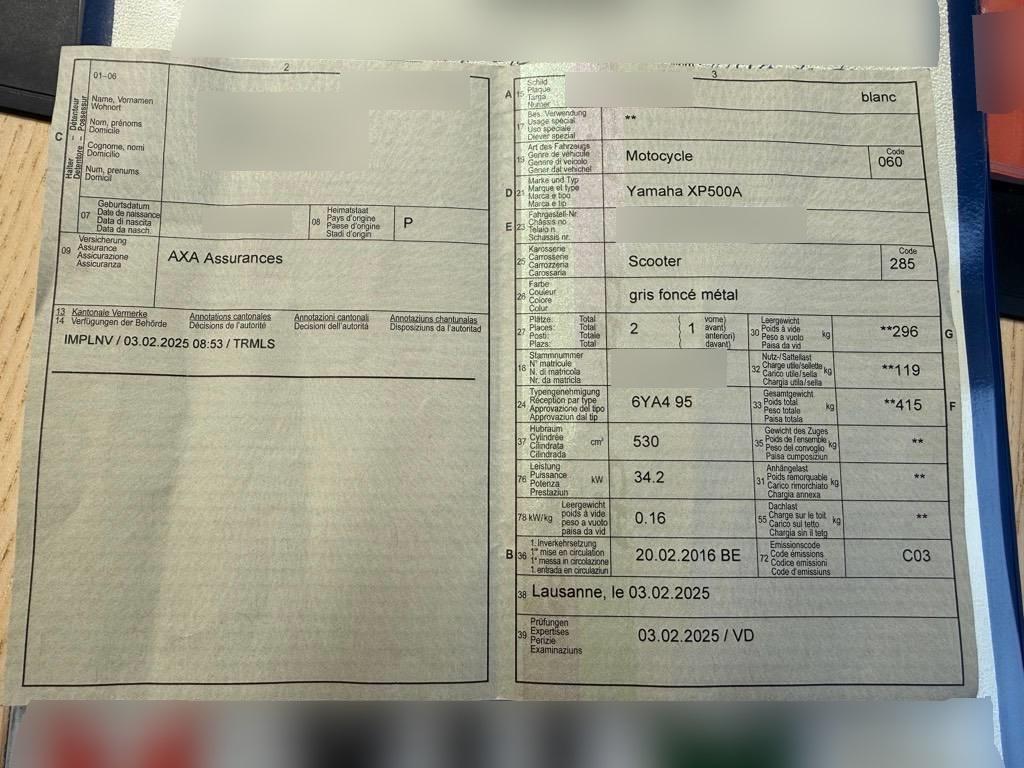 2
01–06
Name, Vornamen
Wohnort
Nom, prénoms
Domicile
Cognome, nomi
Domicilio
Num, prenums
Domicil
C
Halter – Détenteur
Detentore – Possessur
07
Geburtsdatum
Date de naissance
Data di nascita
Data da nasch.
08
Heimatstaat
Pays d'origine
Paese d'origine
Stadi d'origin
P
09
Versicherung
Assurance
Assicurazione
Assicuranza
AXA Assurances
13 Kantonale Vermerke Annotations cantonales Annotazioni cantonali Annotaziuns chantunalas
14 Verfügungen der Behörde Décisions de l'autorité Decisioni dell'autorità Disposiziuns da l'autoritad
IMPLNV / 03.02.2025 08:53 / TRMLS
3
A 15
Schild
Plaque
Targa
Numer
blanc
17
Bes. Verwendung
Usage spécial
Uso speciale
Diever spezial
**
19
Art des Fahrzeugs
Genre de véhicule
Genere di veicolo
Gener dal vehichel
Motocycle
Code
060
D 21
Marke und Typ
Marque et type
Marca e tipo
Marca e tip
Yamaha XP500A
E 23
Fahrgestell-Nr.
Châssis no
Telaio n.
Schassis nr.
25
Karosserie
Carrosserie
Carrozzeria
Carossaria
Scooter
Code
285
26
Farbe
Couleur
Colore
Colur
gris foncé métal
27
Plätze: Total
Places: Total
Posti: Totale
Plazs: Total
2
{ 1
vorne)
avant)
anteriori)
davant)
30
Leergewicht
Poids à vide
Peso a vuoto
Paisa da vid
kg
**296
G
18
Stammnummer
N° matricule
N. di matricola
Nr. da matricla
32
Nutz-/Sattellast
Charge utile/sellette
Carico utile/sella
Chargia utila/sella
kg
**119
24
Typengenehmigung
Réception par type
Approvazione del tipo
Approvaziun dal tip
6YA4 95
33
Gesamtgewicht
Poids total
Peso totale
Paisa totala
kg
**415
F
37
Hubraum
Cylindrée
Cilindrata
Cilindrada
cm³
530
35
Gewicht des Zuges
Poids de l'ensemble
Peso del convoglio
Paisa cumposiziun
kg
**
76
Leistung
Puissance
Potenza
Prestaziun
kW
34.2
31
Anhängelast
Poids remorquable
Carico rimorchiato
Chargia annexa
kg
**
78 kW/kg
Leergewicht
poids à vide
peso a vuoto
paisa da vid
0.16
55
Dachlast
Charge sur le toit
Carico sul tetto
Chargia sin il tetg
kg
**
B 36
1. Inverkehrsetzung
1re mise en circulation
1a messa in circolazione
1. entrada en circulaziun
20.02.2016 BE
72
Emissionscode
Code émissions
Codice emissioni
Code d'emissiuns
C03
38 Lausanne, le 03.02.2025
39
Prüfungen
Expertises
Perizie
Examinaziuns
03.02.2025 / VD